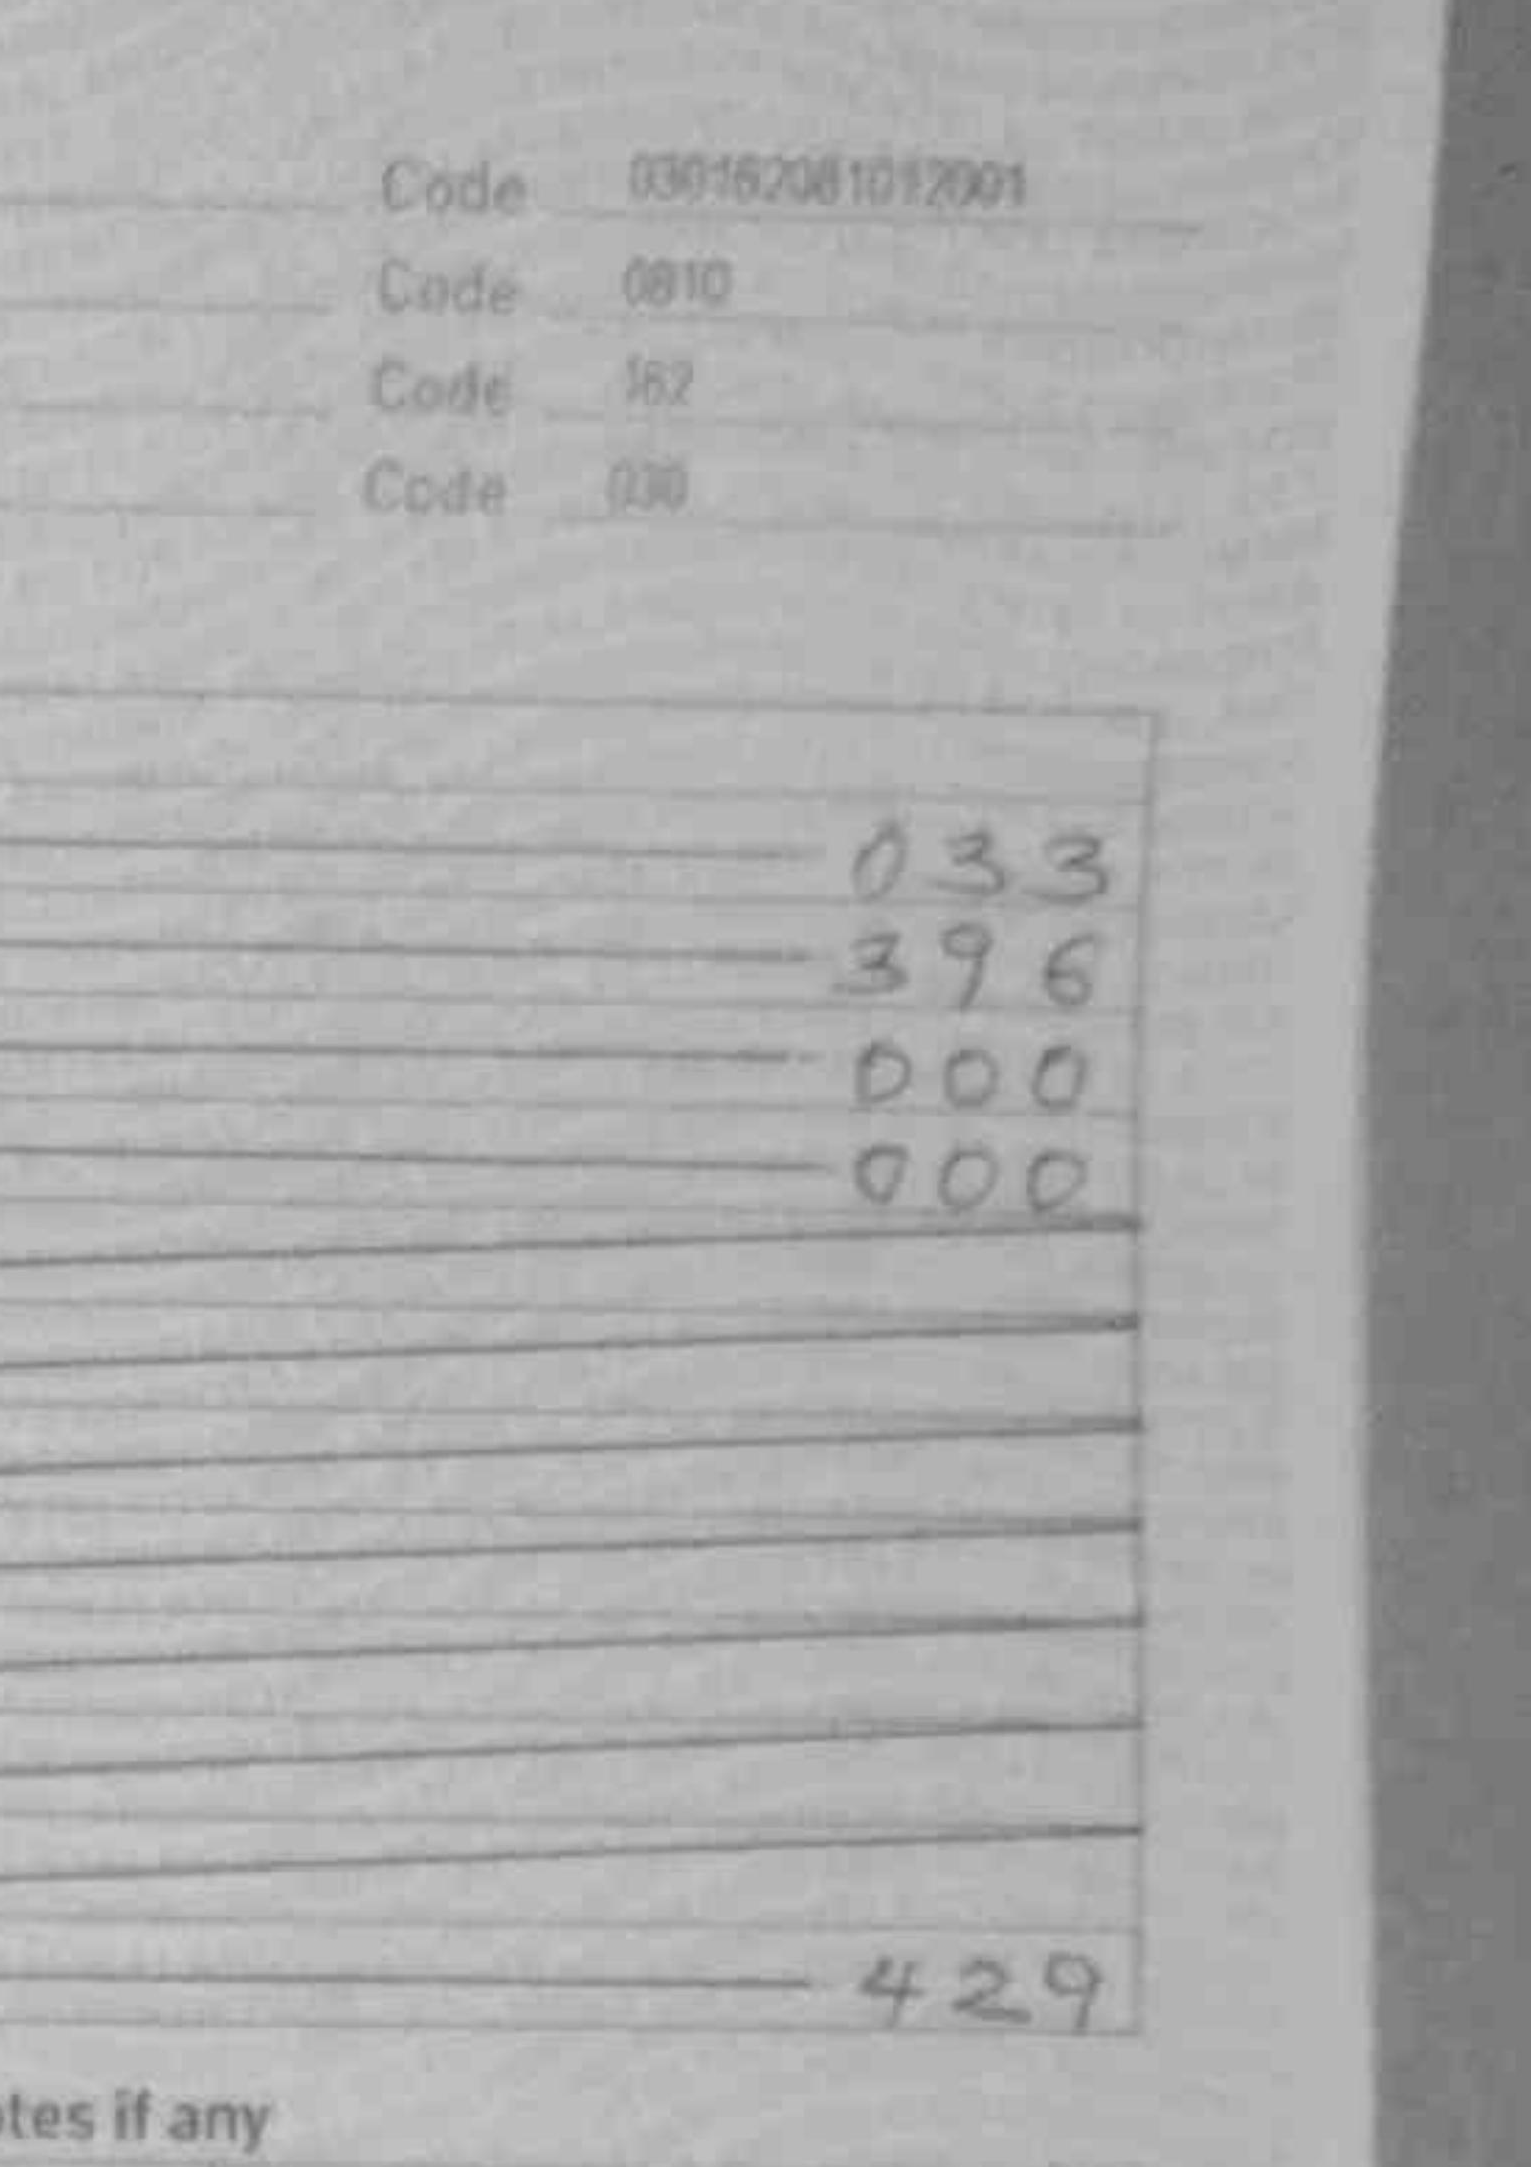 Code 030162081012001
Code 0810
Code 162
Code 030
033
396
000
000
429
otes if any